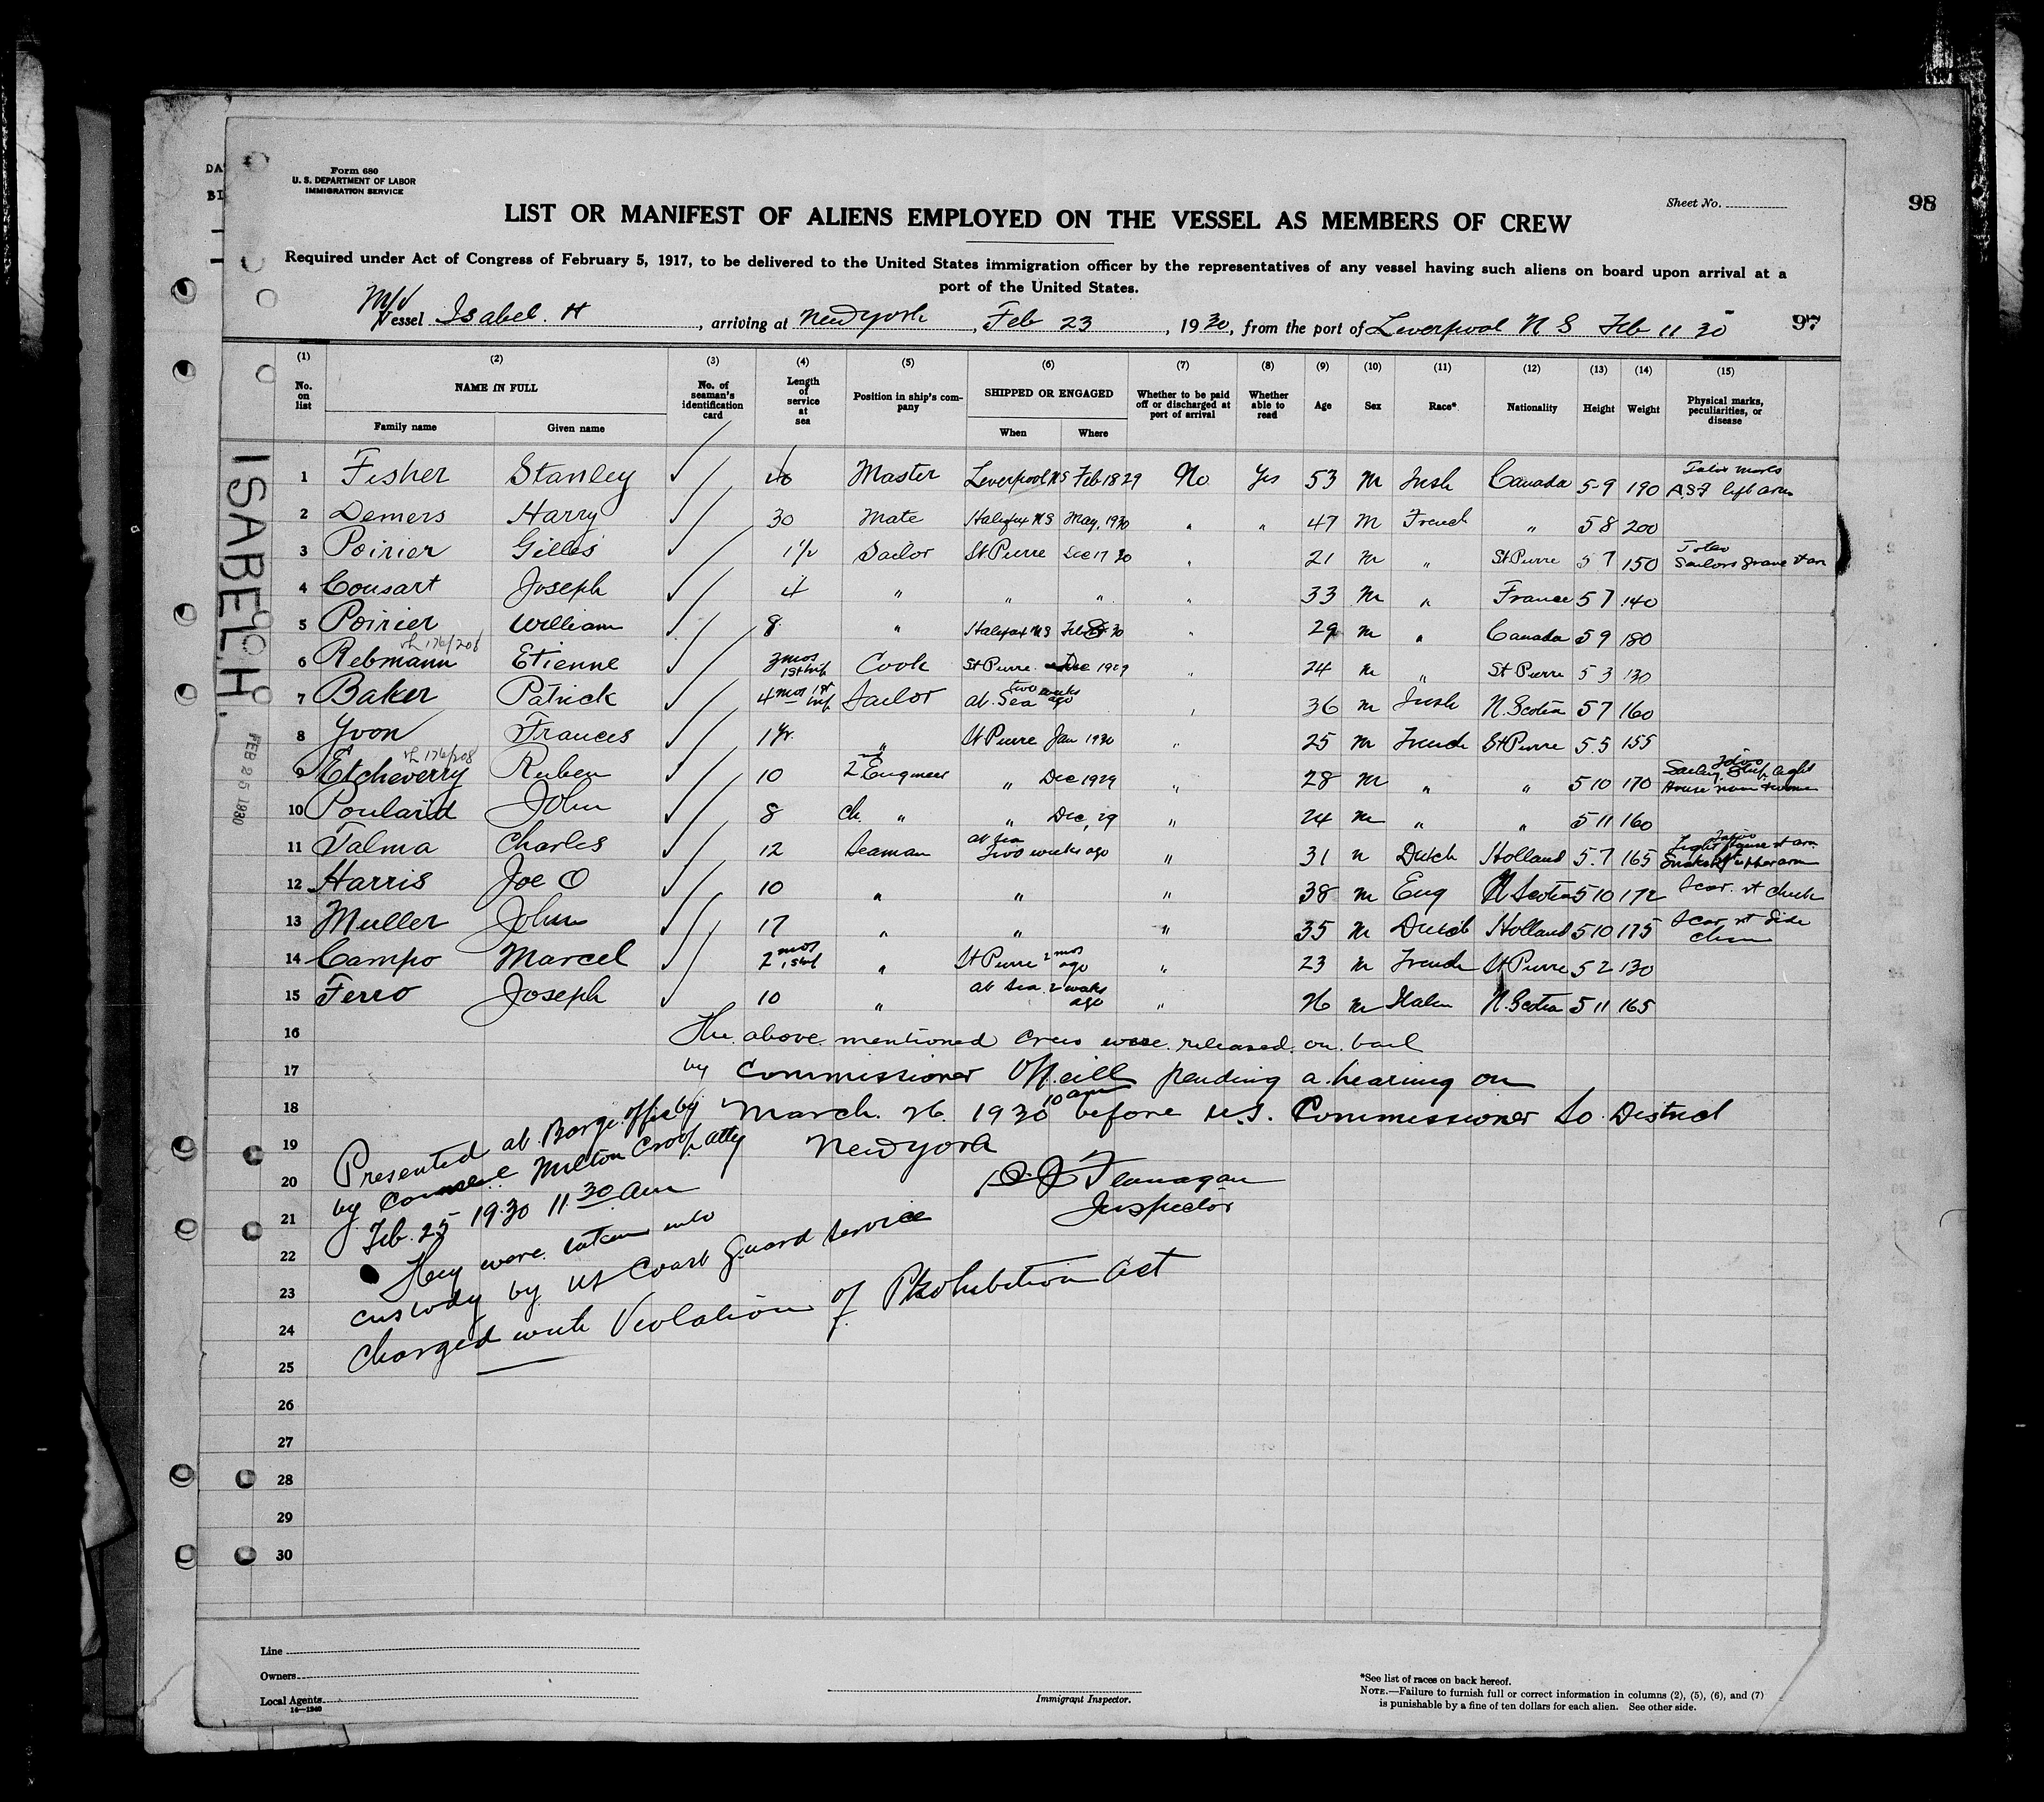 98
Form 680
U. S. DEPARTMENT OF LABOR
IMMIGRATION SERVICE
Sheet No.
LIST OR MANIFEST OF ALIENS EMPLOYED ON THE VESSEL AS MEMBERS OF CREW
Required under Act of Congress of February 5, 1917, to be delivered to the United States immigration officer by the representatives of any vessel having such aliens on board upon arrival at a
port of the United States.
M/V
Vessel Isabel. H , arriving at New York , Feb 23 , 1930, from the port of Liverpool N S Feb 11 30
97
(1) (2) (3) (4) (5) (6) (7) (8) (9) (10) (11) (12) (13) (14) (15)
No. on list NAME IN FULL Family name Given name No. of seaman's identification card Length of service at sea Position in ship's company SHIPPED OR ENGAGED When Where Whether to be paid off or discharged at port of arrival Whether able to read Age Sex Race* Nationality Height Weight Physical marks, peculiarities, or disease
ISABEL H.
FEB 25 1930
1 Fisher Stanley Master Liverpool NS Feb 18 29 No Yes 53 M Irish Canada 5-9 190 marks left arm
2 Demers Harry 30 Mate Halifax NS May, 1930 " " 47 M French " 5 8 200
3 Poirier Gilles 1½ Sailor St Pierre Dec 17 30 " 21 M " St Pierre 5 7 150 Sailors grave
4 Cousart Joseph 4 " " " " 33 M " France 5 7 140
5 Poirier William 8 " Halifax NS Feb 30 " 29 M " Canada 5 9 180
6 Rebmann Etienne 3 mos Cook St Pierre Dec 1929 " 24 M " St Pierre 5 3 130
7 Baker Patrick 4 mos 1st Sailor at Sea two weeks ago " 36 M Irish N. Scotia 5 7 160
8 Yvon Frances 1 yr. " St Pierre Jan 1930 " 25 M French St Pierre 5.5 155
9 Etcheverry Ruben 10 2nd Engineer " Dec 1929 " 28 M " " 5 10 170
10 Poulard John 8 Ch. " " Dec, 29 " 24 M " " 5 11 160
11 Talma Charles 12 Seaman at Sea Two weeks ago " 31 M Dutch Holland 5.7 165
12 Harris Joe O 10 " " " 38 M Eng N Scotia 5 10 172 Scar. rt cheek
13 Muller John 17 " " " 35 M Dutch Holland 5 10 175 Scar rt side chin
14 Campo Marcel 2 mos " St Pierre 2 mos ago " 23 M French St Pierre 5 2 130
15 Ferro Joseph 10 " at Sea 2 weeks ago " 26 M Italian N. Scotia 5 11 165
16 The above mentioned crew were released on bail
17 by Commissioner O'Neill pending a hearing on
18 March. 26. 1930 10 am before U.S. Commissioner So. District
New York
Flanagan
Inspector
19 Presented at Barge office by
20 by Counsel Milton atty
21 Feb. 25 1930 11 30 am
22 They were taken into
23 custody by US Coast Guard Service
24 charged with Violation of Prohibition Act
25
26
27
28
29
30
Line
Owners
Local Agents
14—1240
Immigrant Inspector.
*See list of races on back hereof.
NOTE.—Failure to furnish full or correct information in columns (2), (5), (6), and (7)
is punishable by a fine of ten dollars for each alien. See other side.